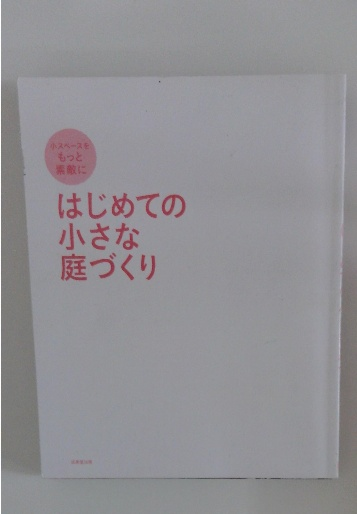 小スペースを
もっと
素敵に
はじめての
小さな
庭づくり